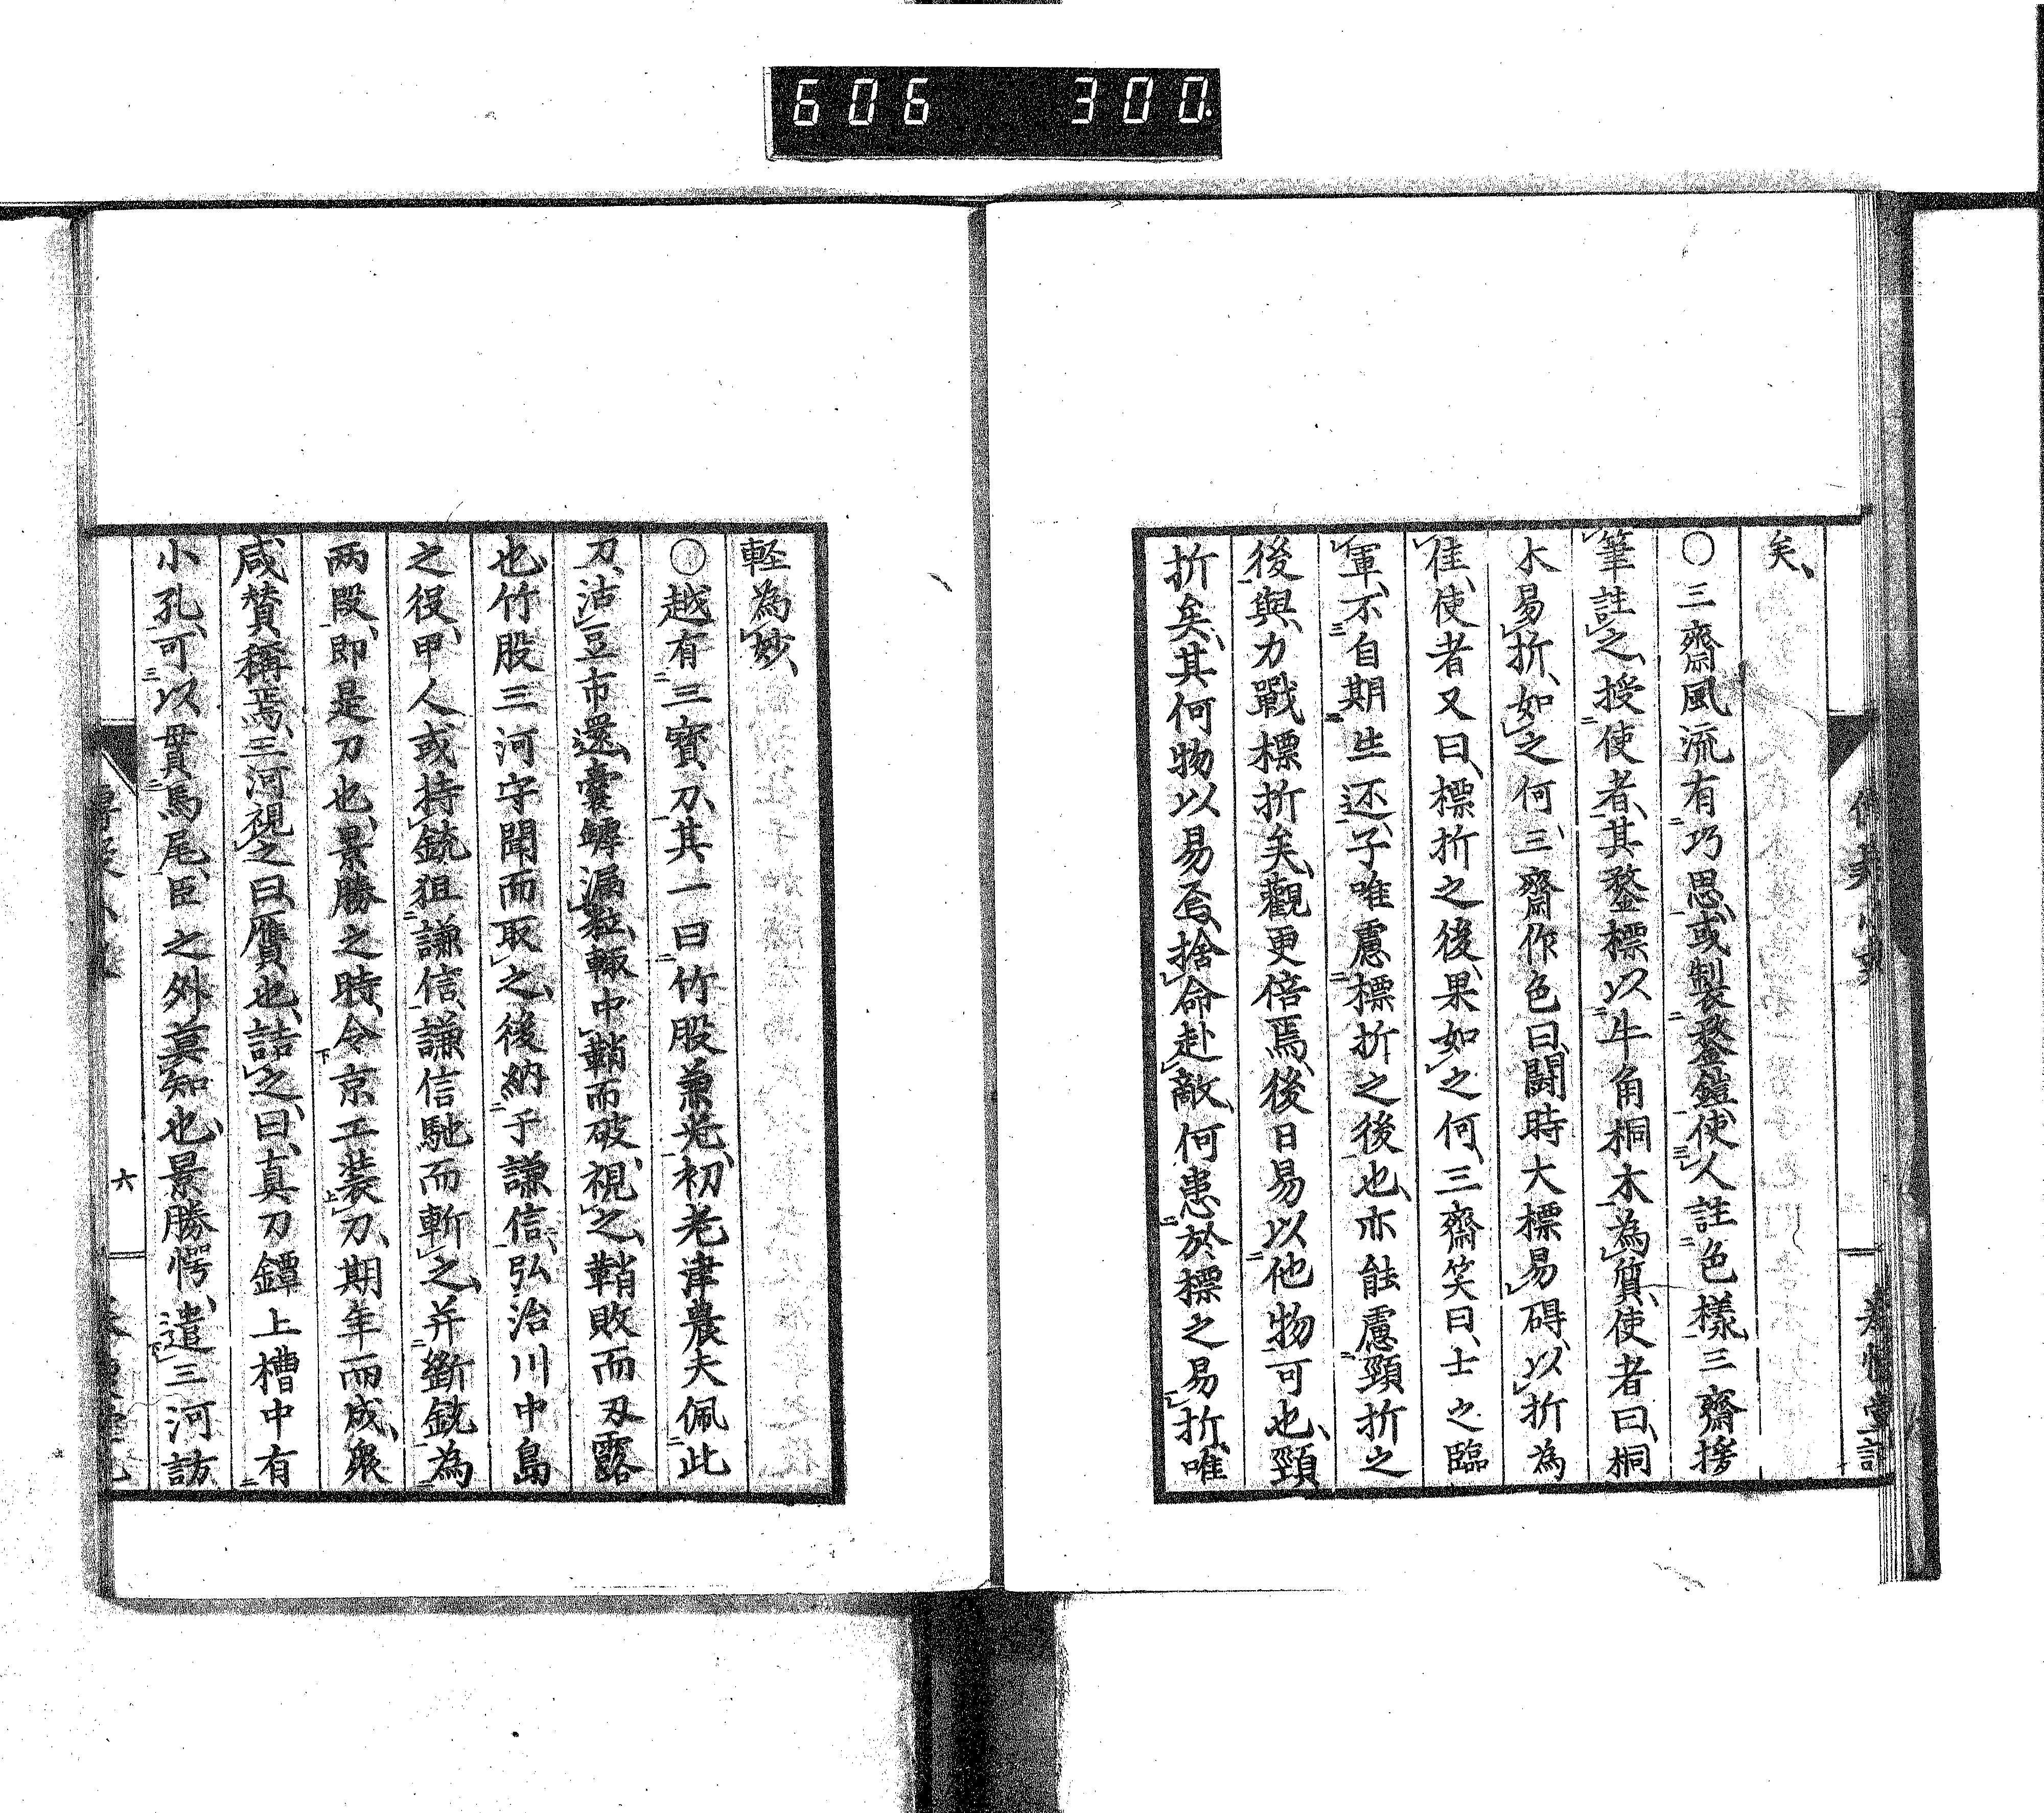 606 300.
矣、
〇三齋風流有巧思、或製鍪鎧、使人註色樣、三齋搒
筆註之、授使者、其鍪標以牛角桐木為質、使者曰、桐
木易折、如之何、三齋作色曰、鬪時大標易碍、以折為
佳、使者又曰、標折之後、果如之何、三齋笑曰、士之臨
軍、不自期生还、子唯慮標折之後也、亦能慮頸折之
後與、力戰標折矣、觀更倍焉、後日易以他物可也、頸
折矣、其何物以易焉、捨命赴敵、何患於標之易折、唯
輕為妙、
〇越有三寳刀、其一曰竹股兼光、初老津農夫佩此
刀、沽豆市還、囊罅漏粒、輙中鞘而破、視之、鞘敗而刃露
也、竹股三河守聞而取之、後納于謙信、弘治川中島
之役、甲人或持銃狙謙信、謙信馳而斬之、并斷銃為
兩段、即是刀也、景勝之時、令京工装刀、期年而成、衆
咸賛稱焉、三河視之曰、贋也、詰之曰、真刀鐔上槽中有
小孔、可以貫馬尾、臣之外莫知也、景勝愕、遣三河訪
六